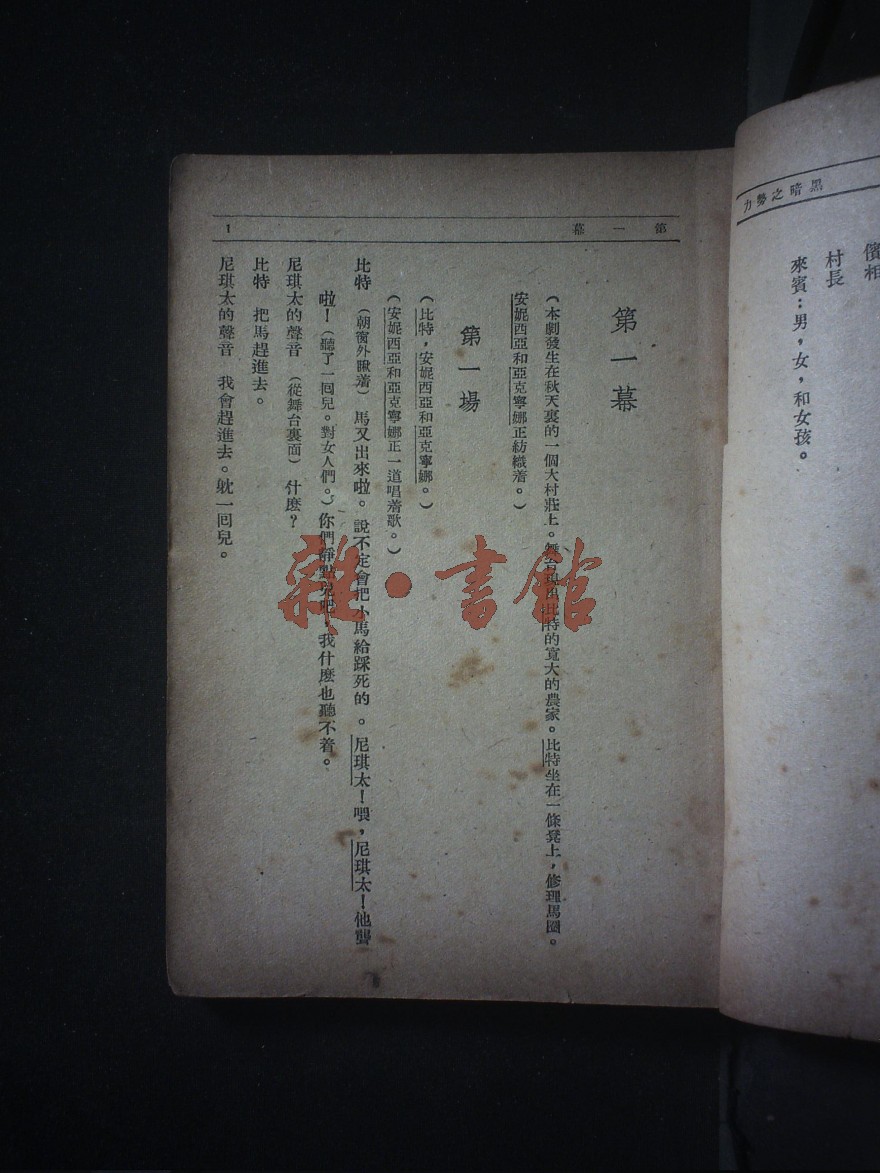 黑暗之勢力
儐相
村長
來賓：男，女，和女孩。
第一幕
1
第一幕
（本劇發生在秋天裏的一個大村莊上。舞台現出比特的寬大的農家。比特坐在一條凳上，修理馬圈。
安妮西亞和亞克寧娜正紡織着。）
第一場
（比特，安妮西亞和亞克寧娜。）
（安妮西亞和亞克寧娜正一道唱着歌。）
比特　（朝窗外瞅着）馬又出來啦。說不定會把小馬給踩死的。尼琪太！喂，尼琪太！他聾
啦！（聽了一回兒。對女人們。）你們靜點兒吧，我什麼也聽不着。
尼琪太的聲音　（從舞台裏面）什麼？
比特　把馬趕進去。
尼琪太的聲音　我會趕進去。躭一回兒。
雜·書館